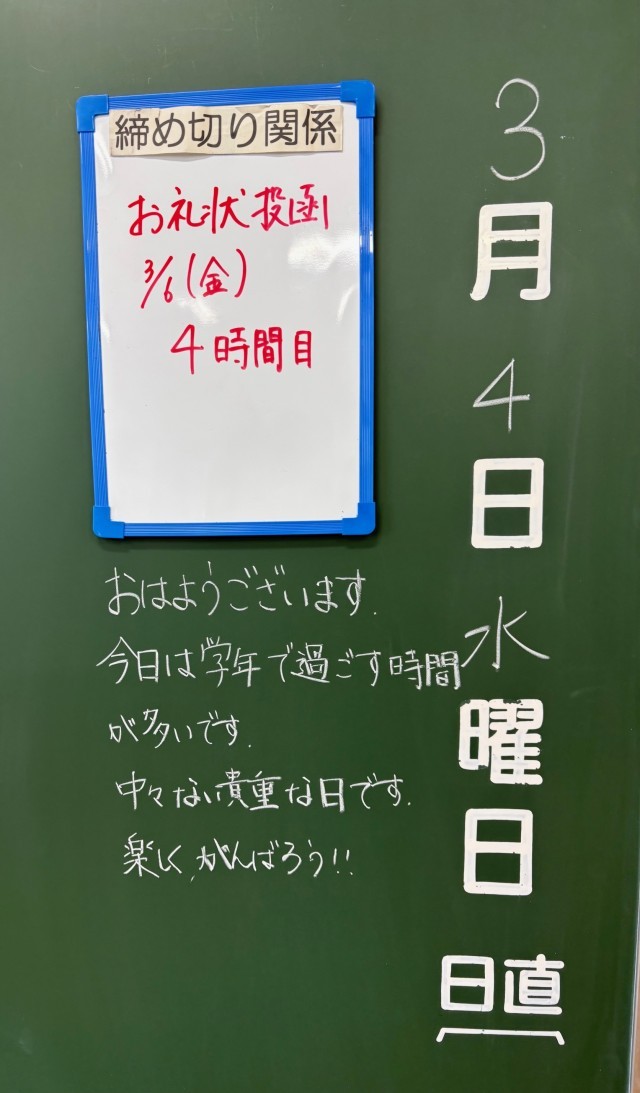 3月4日水曜日
日直
締め切り関係
お礼状投函
3/6(金)
4時間目
おはようございます.
今日は学年で過ごす時間
が多いです.
中々ない貴重な日です.
楽しく,がんばろう!!